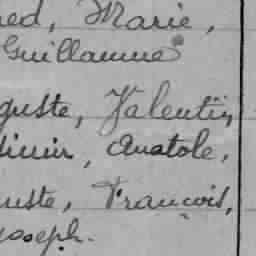 ed, Marie,
Guillaume
guste, Valentin,
imir, Anatole,
uste, François,
Joseph.